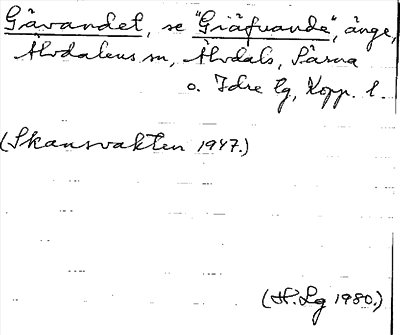 Gåvandet, se "Griäfvande", änge,
Älvdalens sn, Älvdals, Särna
o. Idre tg, Kopp. l.
(Skansvakten 1947.)
(H. Lg 1980.)